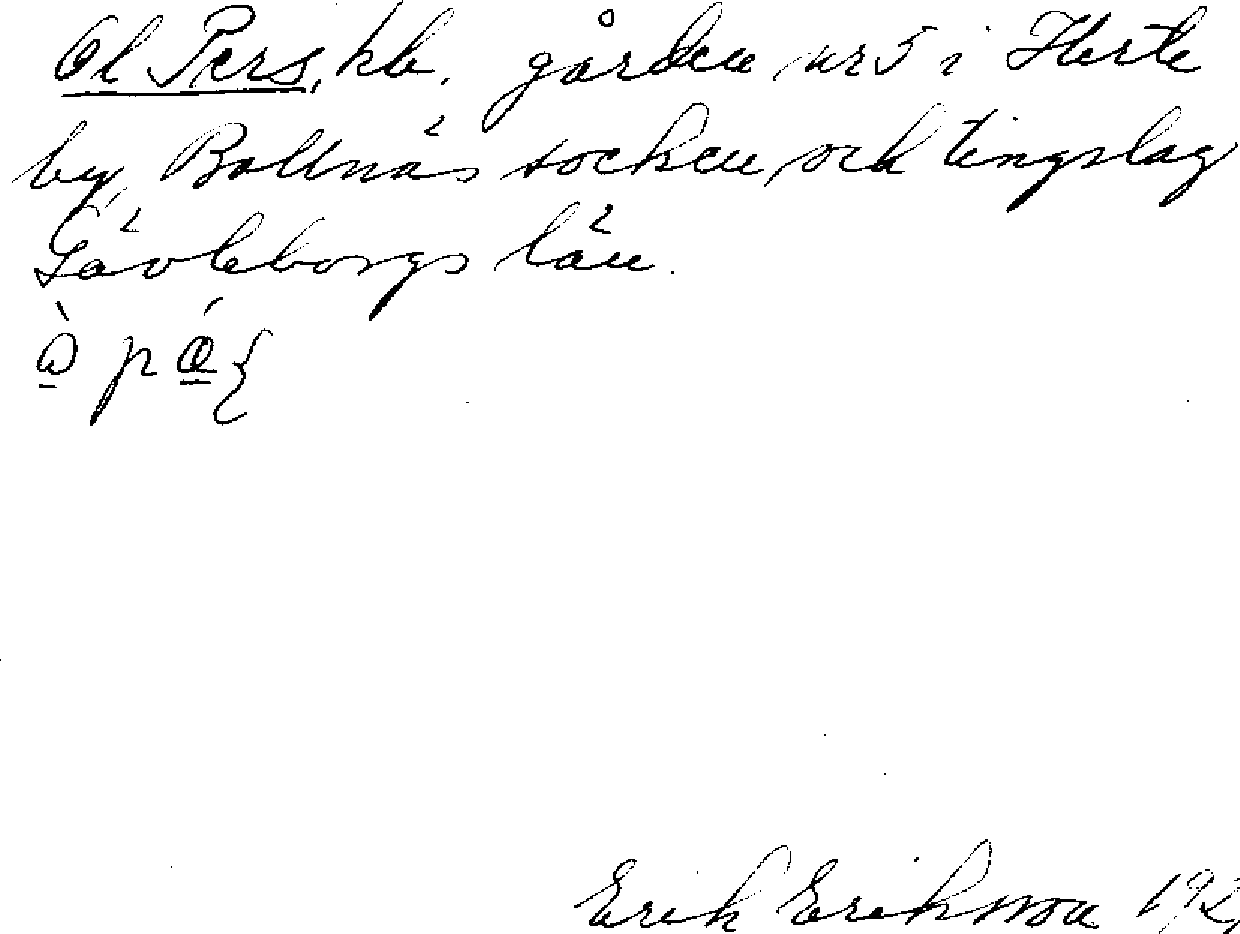 Ol Pers, kb. gården nr 5 i Herte
by, Bollnäs socken och tingslag
Gävleborgs län.
Erik Eriksson